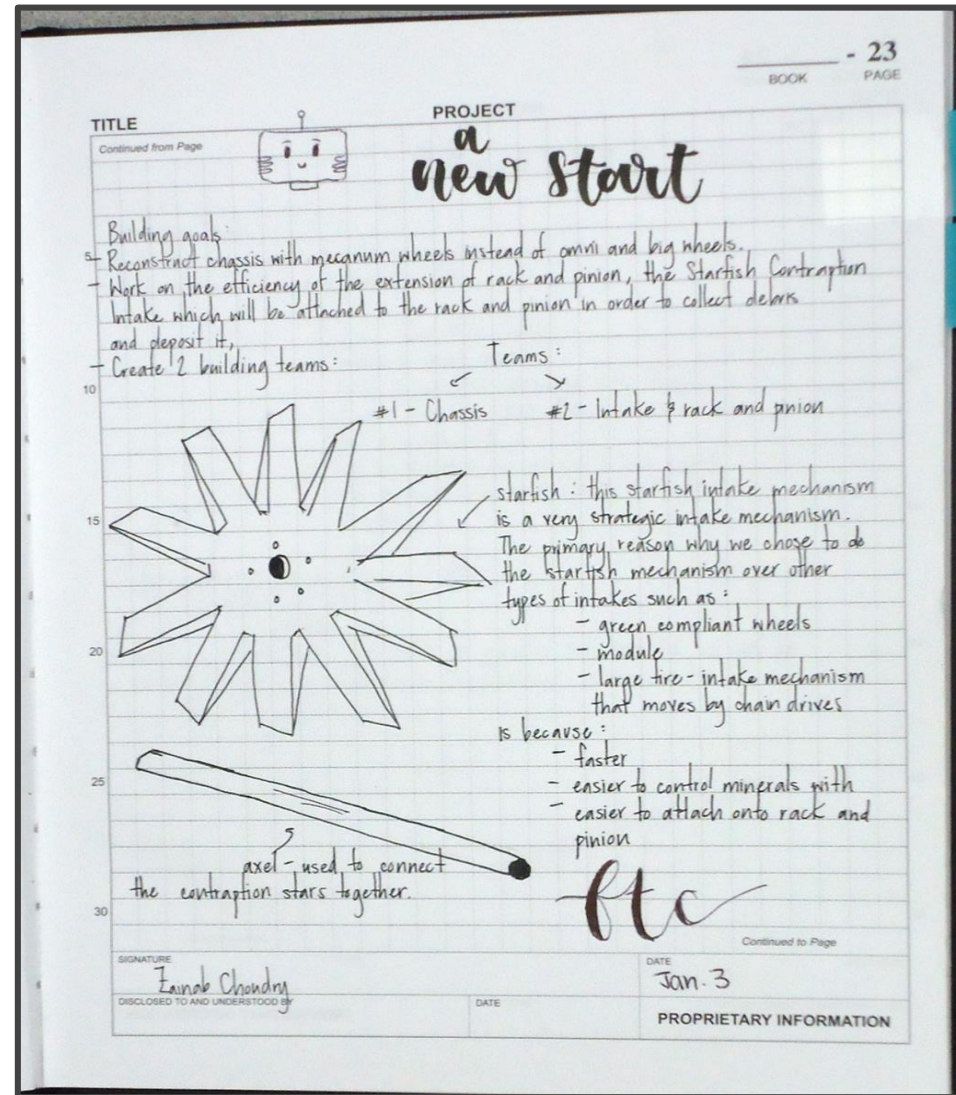 - 23
BOOK PAGE
TITLE PROJECT
Continued from Page
a
new start
Building goals:
5
- Reconstruct chassis with mecanum wheels instead of omni and big wheels.
- Work on the efficiency of the extension of rack and pinion, the Starfish Contraption
Intake which will be attached to the rack and pinion in order to collect debris
and deposit it,
- Create 2 building teams:
Teams:
10
#1 - Chassis #2 - Intake & rack and pinion
starfish: this starfish intake mechanism
15
is a very strategic intake mechanism.
The primary reason why we chose to do
the starfish mechanism over other
types of intakes such as:
- green compliant wheels
20
- module
- large tire - intake mechanism
that moves by chain drives
is because:
- faster
25
- easier to control minerals with
- easier to attach onto rack and
pinion
axel - used to connect
the contraption stars together.
ftc
30
Continued to Page
SIGNATURE
Zainab Choudry
DATE
Jan. 3
DISCLOSED TO AND UNDERSTOOD BY
DATE
PROPRIETARY INFORMATION